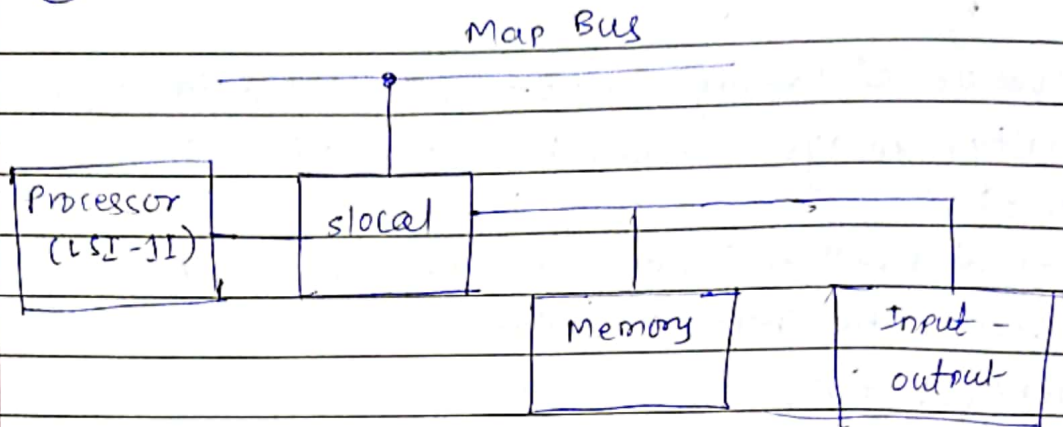 Map Bus
Processor
(LSI-11)
slocal
Memory
Input -
output